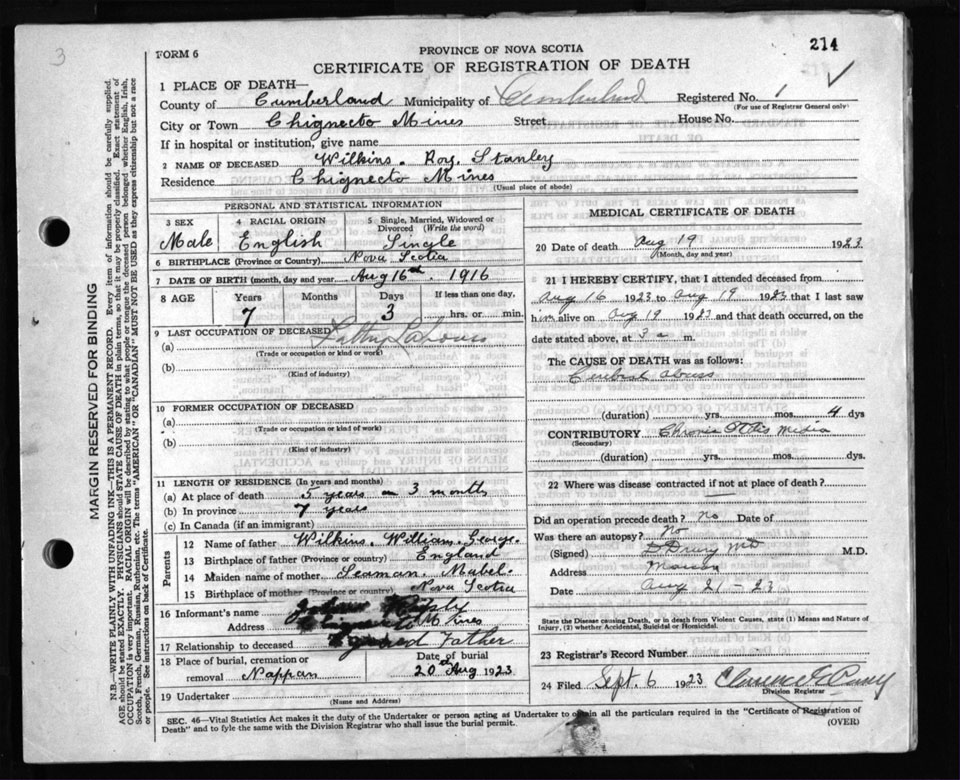 3
214
FORM 6
PROVINCE OF NOVA SCOTIA
CERTIFICATE OF REGISTRATION OF DEATH
1 PLACE OF DEATH—
County of Cumberland Municipality of Cumberland Registered No. 1
(For use of Registrar General only)
City or Town Chignecto Mines Street House No.
If in hospital or institution, give name
2 NAME OF DECEASED Wilkins. Roy. Stanley
Residence Chignecto Mines
(Usual place of abode)
PERSONAL AND STATISTICAL INFORMATION
3 SEX Male
4 RACIAL ORIGIN English
5 Single, Married, Widowed or Divorced (Write the word) Single
6 BIRTHPLACE (Province or Country) Nova Scotia
7 DATE OF BIRTH (month, day and year) Aug 16th. 1916
8 AGE Years Months Days If less than one day,
7 3 hrs. or min.
9 LAST OCCUPATION OF DECEASED
(a)
(Trade or occupation or kind or work)
(b)
(Kind of industry)
10 FORMER OCCUPATION OF DECEASED
(a)
(Trade or occupation or kind of work)
(b)
(Kind of industry)
11 LENGTH OF RESIDENCE (In years and months)
(a) At place of death 5 years 3 months
(b) In province 7 years
(c) In Canada (if an immigrant)
Parents
12 Name of father Wilkins. William. George.
13 Birthplace of father (Province or country) England
14 Maiden name of mother Seaman. Mabel.
15 Birthplace of mother (Province or country) Nova Scotia
16 Informant's name
Address Chignecto Mines
17 Relationship to deceased Father
18 Place of burial, cremation or removal Nappan
Date of burial 20th Aug 1923
19 Undertaker
(Name and Address)
MEDICAL CERTIFICATE OF DEATH
20 Date of death Aug 19 1923
(Month, day and year)
21 I HEREBY CERTIFY, that I attended deceased from
Aug 16 1923 to Aug 19 1923 that I last saw
him alive on Aug 19 1923 and that death occurred, on the
date stated above, at 3 a m.
The CAUSE OF DEATH was as follows:
Cerebral abscess
(duration) yrs. mos. 4 dys
CONTRIBUTORY Chronic Otitis Media
(Secondary)
(duration) yrs. mos. dys.
22 Where was disease contracted if not at place of death?
Did an operation precede death? no Date of
Was there an autopsy? No
(Signed) D Drury MD M.D.
Address Maccan
Date Aug 21 - 23
State the Disease causing Death, or in death from Violent Causes, state (1) Means and Nature of
Injury, (2) whether Accidental, Suicidal or Homicidal.
23 Registrar's Record Number
24 Filed Sept. 6 1923 Clarence
Division Registrar
SEC. 46—Vital Statistics Act makes it the duty of the Undertaker or person acting as Undertaker to obtain all the particulars required in the "Certificate of Registration of
Death" and to fyle the same with the Division Registrar who shall issue the burial permit.
(OVER)
MARGIN RESERVED FOR BINDING
N.B.—WRITE PLAINLY WITH UNFADING INK—THIS IS A PERMANENT RECORD. Every item of information should be carefully supplied.
AGE should be stated EXACTLY. PHYSICIANS should STATE CAUSE OF DEATH in plain terms, so that it may be properly classified. Exact statement of
OCCUPATION is very important. RACIAL ORIGIN will be described by stating to what people or tongue the deceased person belonged whether English, Irish,
Scotch, French, German, Russian, Ruthenian, etc. The terms "AMERICAN" OR "CANADIAN" MUST NOT BE USED as they express citizenship but not a race
or people. See instructions on back of Certificate.